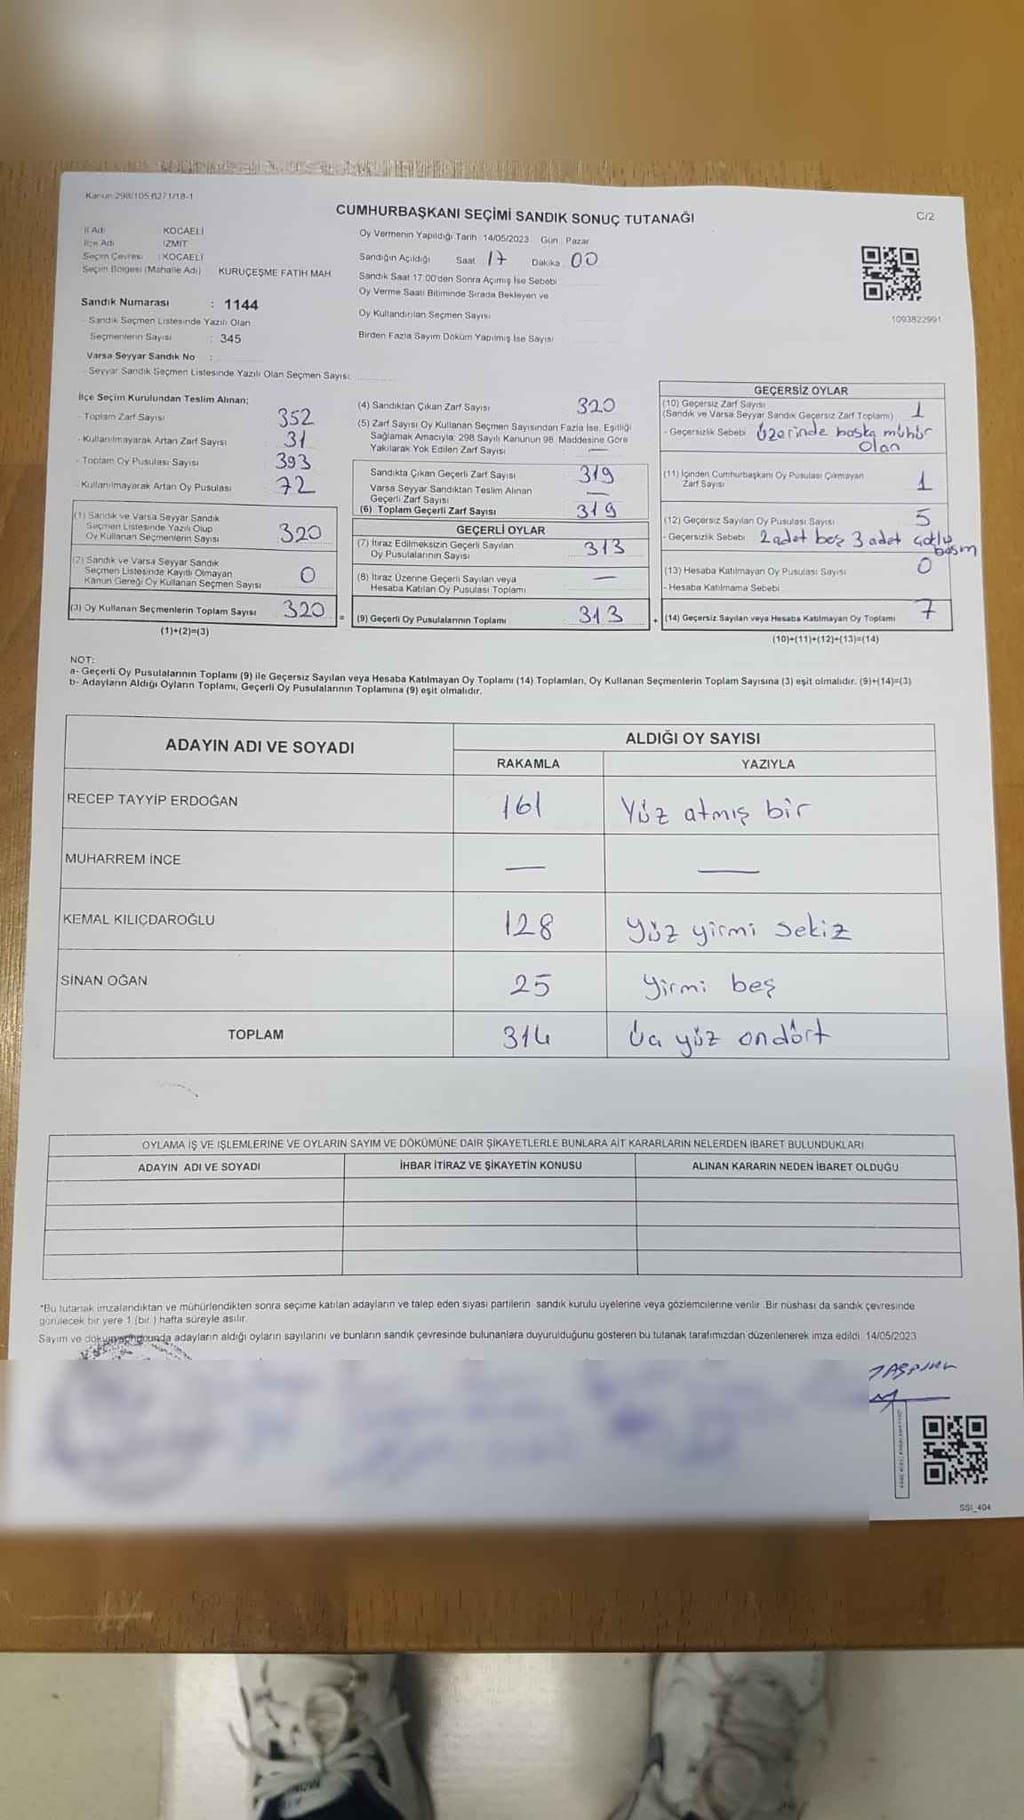 Kanun 298/105 6271/18-1
CUMHURBAŞKANI SEÇİMİ SANDIK SONUÇ TUTANAĞI
C/2
İl Adı KOCAELİ
İlçe Adı İZMİT
Seçim Çevresi : KOCAELİ
Seçim Bölgesi (Mahalle Adı) KURUÇEŞME FATİH MAH
Oy Vermenin Yapıldığı Tarih 14/05/2023 Gün : Pazar
Sandığın Açıldığı Saat 17 Dakika 00
Sandık Saat 17:00'den Sonra Açımış İse Sebebi
Oy Verme Saati Bitiminde Sırada Bekleyen ve
Oy Kullandırılan Seçmen Sayısı
Birden Fazla Sayım Döküm Yapılmış İse Sayısı
1093822991
Sandık Numarası : 1144
- Sandık Seçmen Listesinde Yazılı Olan
Seçmenlerin Sayısı : 345
Varsa Seyyar Sandık No :
- Seyyar Sandık Seçmen Listesinde Yazılı Olan Seçmen Sayısı:
İlçe Seçim Kurulundan Teslim Alınan;
- Toplam Zarf Sayısı 352
- Kullanılmayarak Artan Zarf Sayısı 31
- Toplam Oy Pusulası Sayısı 393
- Kullanılmayarak Artan Oy Pusulası 72
(1) Sandık ve Varsa Seyyar Sandık
Seçmen Listesinde Yazılı Olup
Oy Kullanan Seçmenlerin Sayısı 320
(2) Sandık ve Varsa Seyyar Sandık
Seçmen Listesinde Kayıtlı Olmayan
Kanun Gereği Oy Kullanan Seçmen Sayısı 0
(3) Oy Kullanan Seçmenlerin Toplam Sayısı 320
(1)+(2)=(3)
(4) Sandıktan Çıkan Zarf Sayısı 320
(5) Zarf Sayısı Oy Kullanan Seçmen Sayısından Fazla İse, Eşitliği
Sağlamak Amacıyla; 298 Sayılı Kanunun 98. Maddesine Göre
Yakılarak Yok Edilen Zarf Sayısı —
Sandıkta Çıkan Geçerli Zarf Sayısı 319
Varsa Seyyar Sandıktan Teslim Alınan
Geçerli Zarf Sayısı —
(6) Toplam Geçerli Zarf Sayısı 319
GEÇERLİ OYLAR
(7) İtiraz Edilmeksizin Geçerli Sayılan
Oy Pusulalarının Sayısı 313
(8) İtiraz Üzerine Geçerli Sayılan veya
Hesaba Katılan Oy Pusulası Toplamı —
= (9) Geçerli Oy Pusulalarının Toplamı 313
GEÇERSİZ OYLAR
(10) Geçersiz Zarf Sayısı
(Sandık ve Varsa Seyyar Sandık Geçersiz Zarf Toplamı) 1
- Geçersizlik Sebebi Üzerinde başka mühür
olan
(11) İçinden Cumhurbaşkanı Oy Pusulası Çıkmayan
Zarf Sayısı 1
(12) Geçersiz Sayılan Oy Pusulası Sayısı 5
- Geçersizlik Sebebi 2 adet boş 3 adet çoklu
basım
(13) Hesaba Katılmayan Oy Pusulası Sayısı 0
- Hesaba Katılmama Sebebi
+ (14) Geçersiz Sayılan veya Hesaba Katılmayan Oy Toplamı 7
(10)+(11)+(12)+(13)=(14)
NOT:
a- Geçerli Oy Pusulalarının Toplamı (9) ile Geçersiz Sayılan veya Hesaba Katılmayan Oy Toplamı (14) Toplamları, Oy Kullanan Seçmenlerin Toplam Sayısına (3) eşit olmalıdır. (9)+(14)=(3)
b- Adayların Aldığı Oyların Toplamı, Geçerli Oy Pusulalarının Toplamına (9) eşit olmalıdır.
ADAYIN ADI VE SOYADI ALDIĞI OY SAYISI
RAKAMLA YAZIYLA
RECEP TAYYİP ERDOĞAN 161 Yüz atmış bir
MUHARREM İNCE — —
KEMAL KILIÇDAROĞLU 128 Yüz yirmi sekiz
SİNAN OĞAN 25 Yirmi beş
TOPLAM 314 Üç yüz ondört
OYLAMA İŞ VE İŞLEMLERİNE VE OYLARIN SAYIM VE DÖKÜMÜNE DAİR ŞİKAYETLERLE BUNLARA AİT KARARLARIN NELERDEN İBARET BULUNDUKLARI
ADAYIN ADI VE SOYADI İHBAR İTİRAZ VE ŞİKAYETİN KONUSU ALINAN KARARIN NEDEN İBARET OLDUĞU
*Bu tutanak imzalandıktan ve mühürlendikten sonra seçime katılan adayların ve talep eden siyasi partilerin sandık kurulu üyelerine veya gözlemcilerine verilir. Bir nüshası da sandık çevresinde
görülecek bir yere 1 (bir ) hafta süreyle asılır.
Sayım ve dökümünde adayların aldığı oyların sayılarını ve bunların sandık çevresinde bulunanlara duyurulduğunu gösteren bu tutanak tarafımızdan düzenlenerek imza edildi. 14/05/2023
SSI_404